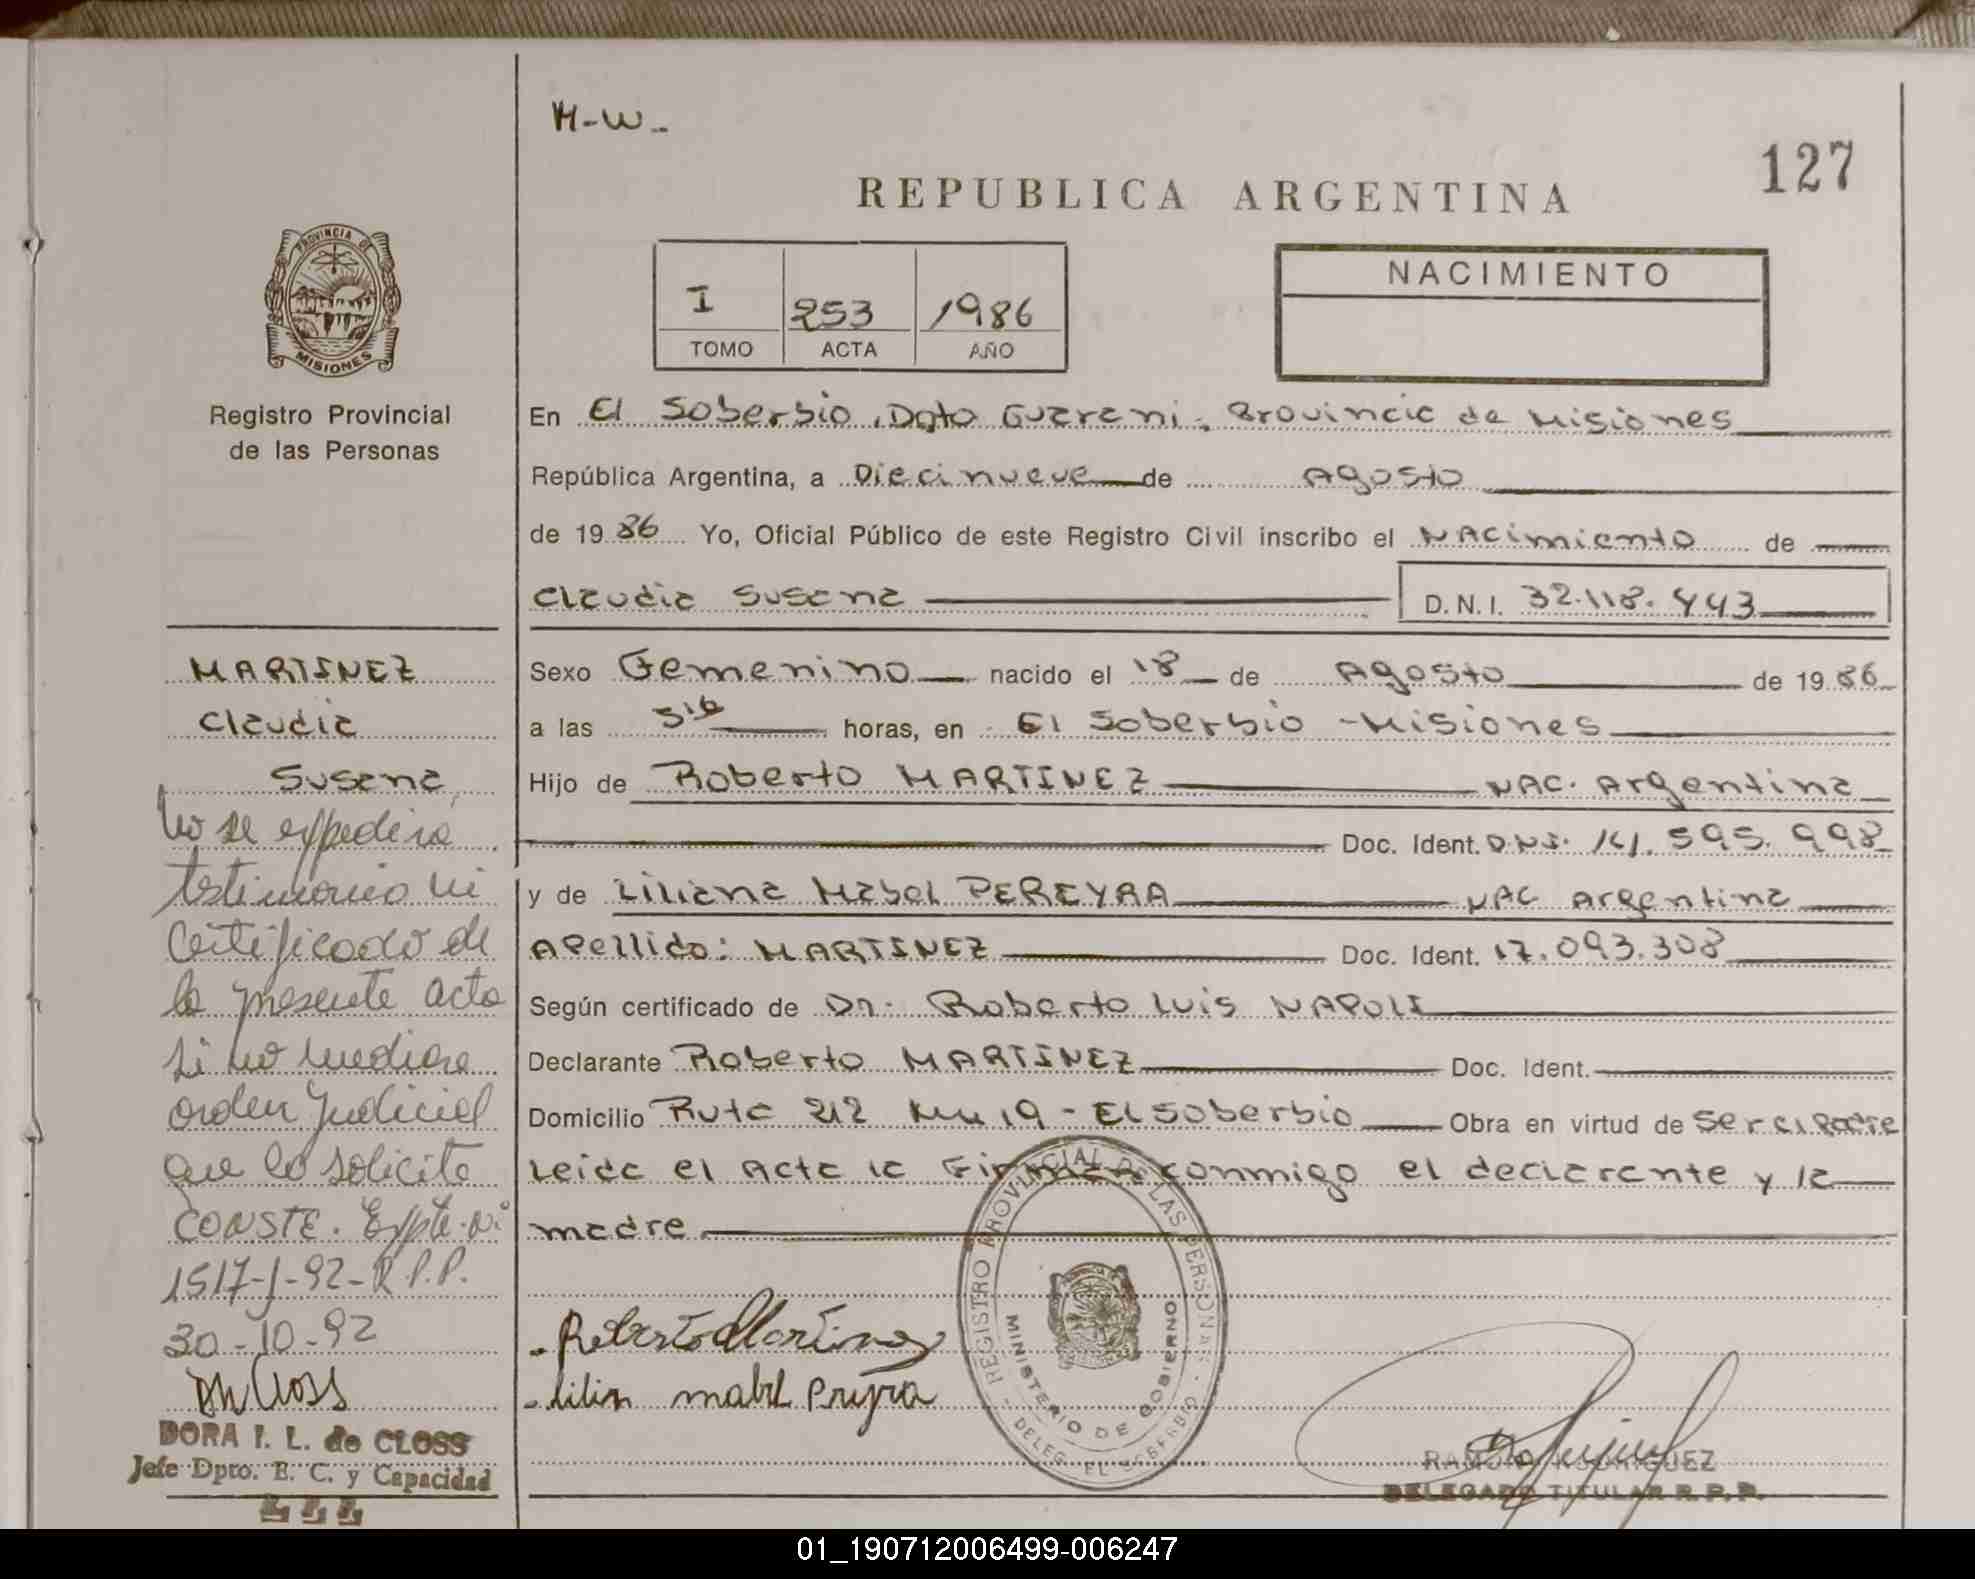 H-W-
127
REPUBLICA ARGENTINA
PROVINCIA DE
MISIONES
Registro Provincial
de las Personas
I 253 1986
TOMO ACTA AÑO
NACIMIENTO
En El Soberbio, Dpto Guarani, Provincia de Misiones
República Argentina, a Diecinueve de Agosto
de 1986 Yo, Oficial Público de este Registro Civil inscribo el NACimiento de
Claudia Susana D.N.I. 32.118.443
Sexo Femenino nacido el 18 de Agosto de 1986
a las horas, en El Soberbio - Misiones
Hijo de Roberto MARTINEZ NAC. Argentina
Doc. Ident. D.N.I. 14.595.998
y de Liliana Mabel PEREYRA NAC Argentina
Apellido: MARTINEZ Doc. Ident. 17.093.308
Según certificado de Dr. Roberto Luis NAPOLI
Declarante Roberto MARTINEZ Doc. Ident.
Domicilio Ruta 212 Km 19 - El Soberbio Obra en virtud de ser el Padre
Leida el Acta la Firman conmigo el declarante y la
madre
MARTINEZ
Claudia
Susana
No se expedira
testimonio ni
Certificado de
la presente acta
si no mediare
orden judicial
que lo solicite
CONSTE. Expte. Nº
1517-J-92-R.P.P.
30-10-92
DORA I. L. de CLOSS
Jefe Dpto. E. C. y Capacidad
L L L
Roberto Martinez
Lilian mabel Preyra
REGISTRO PROVINCIAL DE LAS PERSONAS
MINISTERIO DE GOBIERNO
DELEG. EL SOBERBIO
RAMON RODRIGUEZ
DELEGADO TITULAR R.P.P.
01_190712006499-006247